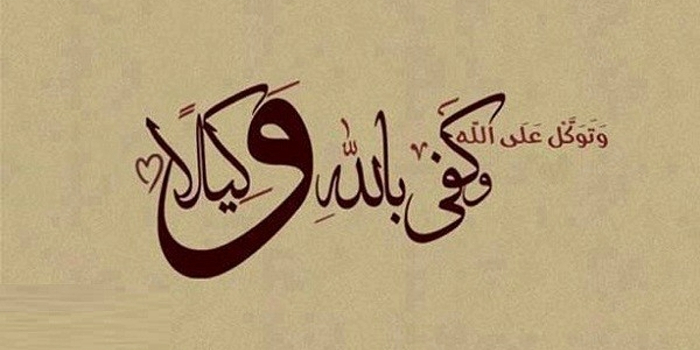 وَتَوَكَّلْ عَلَى اللَّه وَكَفَى بِاللهِ وَكِيلًا